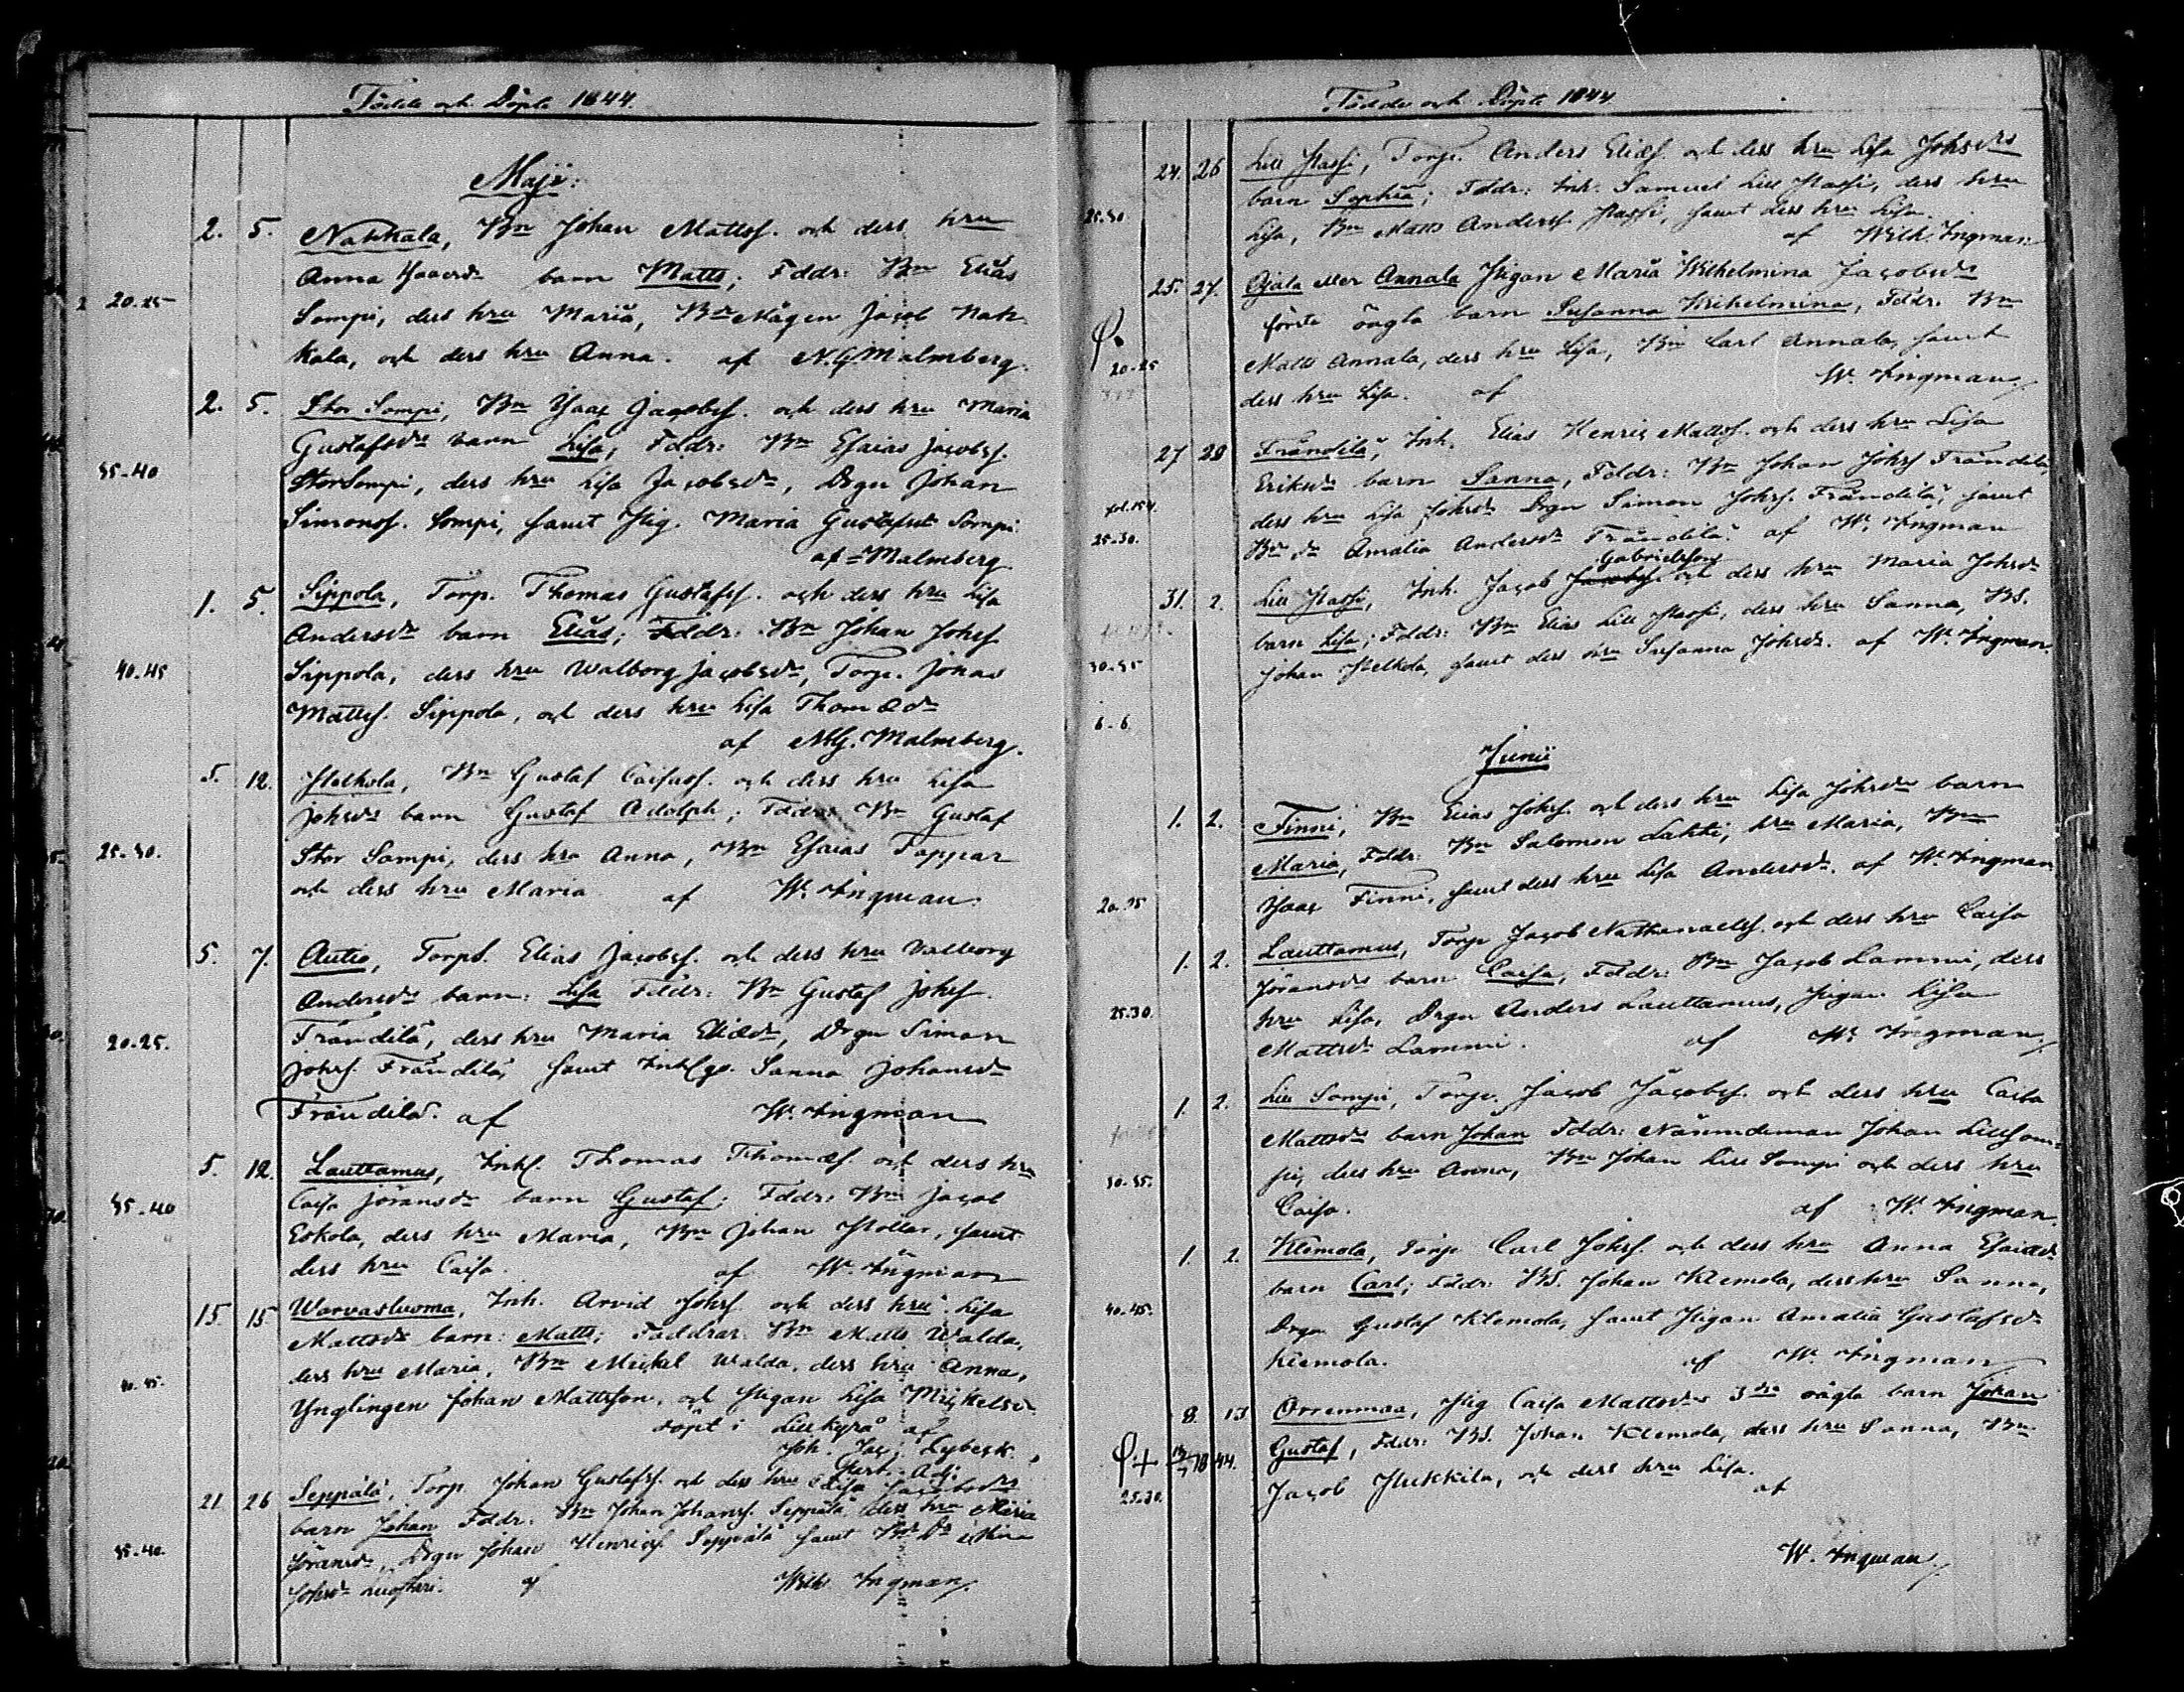 Födde och Döpte 1844.
Maji:
2. 5. Nahkala, Bn Johan Mattsf. och dess hru
Anna Isacsdr barn Matts; Fddr: Bn Elias
20-25 Sompi, dess hru Maria, Bn Mågen Jacob Nah-
kala, och dess hru Anna. af N.G. Malmberg.
2. 5. Stor Sompi, Bn Isac Jacobsf. och dess hru Maria
Gustafsdr barn Lisa, Fddr: Bn Esaias Jacobsf.
35-40 Stor Sompi, dess hru Lisa Jacobsdr, Drgn Johan
Simonsf. Sompi, samt Pig. Maria Gustafsdr Sompi
af Malmberg
1. 5. Sippola, Torp. Thomas Gustafsf. och dess hru Lisa
Andersdr barn Elias; Fddr: Bn Johan Johsf
40-45 Sippola, dess hru Walborg Jacobsdr, Torp. Jonas
Mattsf. Sippola, och dess hru Lisa Thomædr
af N.G. Malmberg.
5. 12. Bn Gustaf Caisasf. och dess hru Lisa
Johsdr barn Gustaf Adolph; Fddr: Bn Gustaf
25-30. Stor Sompi, dess hru Anna, Bn Esaias Toppar
och dess hru Maria af W. Ingman.
5. 7. Autio, Torp. Elias Jacobsf. och dess hru Valborg
Andersdr barn: Lisa Fddr: Bn Gustaf Johsf.
20-25. Frändilä, dess hru Maria Eliædr, Drgn Simon
Johsf. Frändilä, samt Sanna Johansdr
Frändilä. af W. Ingman
5. 12. Lauttamus, Inhs. Thomas Thomæf. och dess hru
Caisa Jöransdr barn Gustaf; Fddr: Bn Jacob
35-40 Eskola, dess hru Maria, Bn Johan samt
dess hru Caisa. af W. Ingman
15. 15 Warvasluoma, Inh. Arvid Johsf. och dess hru Lisa
Mattsdr barn: Matts; Faddrar: Bn Matts Walda,
dess hru Maria, Bn Mickel Walda, dess hru Anna,
40-45. Ynglingen Johan Mattsson, och Pigan Lisa Mickelsdr.
döpt i Lillkyrå af
Joh. Jac: Lybeck,
Past. Adj.
21. 26 Seppälä, Torp. Johan Gustafsf. och dess hru Lisa Jacobsdr
barn Johan Fddr: Bn Johan Johansf. Seppälä, dess hru Maria
35-40. Jöransdr, Drgn Johan Henricsf Seppälä samt
Johsdr af Wilh. Ingman.
Födde och Döpte 1844.
24. 26 Lill Torp. Anders Eliæf. och dess hru Lisa Johsdrs
barn Sophia; Fddr: Inh. Samuel Lill dess hru
25-30 Lisa, Bn Matts Andersf. samt dess hru Lisa.
af Wilh. Ingman
25. 27. Ojala eller Annala Pigan Maria Wilhelmina Jacobsdrs
första oägta barn Susanna Wilhelmina, Fddr: Bn
20-25 Matts Annala, dess hru Lisa, Bn Carl Annala, samt
dess hru Lisa. af W. Ingman
27 28 Frändilä, Inh. Elias Henric Mattsf. och dess hru Lisa
Eriksdr barn Sanna, Fddr: Bn Johan Johsf Frändilä,
fol. 154. dess hru Lisa Johsdr Drgn Simon Johsf. Frändilä, samt
25-30. Bn dr Amalia Andersdr Frändilä. af W. Ingman
Gabrielsson
31. 2. Lill Inh. Jacob Jacobsf. och dess hru Maria Johsdr
barn Lisa; Fddr: Bn Elias Lill dess hru Sanna, BS.
30-35 Johan samt dess hru Susanna Johsdr. af W. Ingman.
6-6.
Junii
1. 2. Finni, Bn Elias Johsf. och dess hru Lisa Johsdr barn
Maria, Fddr: Bn Salomon Lahti, hru Maria, Bn
20-25 Isac Finni, samt dess hru Lisa Andersdr. af W. Ingman
1. 2. Lauttamus, Torp Jacob Nathanaelsf. och dess hru Caisa
Jöransdr barn Caisa, Fddr: Bn Jacob Lammi, dess
25-30. hru Lisa, Drgn Anders Lauttamus, Pigan Lisa
Mattsdr Lammi. af W. Ingman
1. 2. Lill Sompi, Torp. Jacob Jacobsf. och dess hru Caisa
Mattsdr barn Johan Fddr: Nämndeman Johan Lill Som-
30-35. pi, dess hru Anna, Bn Johan Lill Sompi och dess hru
Caisa. af W. Ingman.
1. 2. Klemola, Torp Carl Johsf. och dess hru Anna Esaiædr
barn Carl; Fddr: BS. Johan Klemola, dess hru Sanna,
40-45. Drgn Gustaf Klemola, samt Pigan Amalia Gustafsdr
Klemola. af W. Ingman
8. 13. Orrenmaa, Pig Caisa Mattsdrs 3dje oägta barn Johan
Gustaf, Fddr: BS. Johan Klemola, dess hru Sanna, Bn
25-30. Jacob Hukkila, och dess hru Lisa. af
W. Ingman